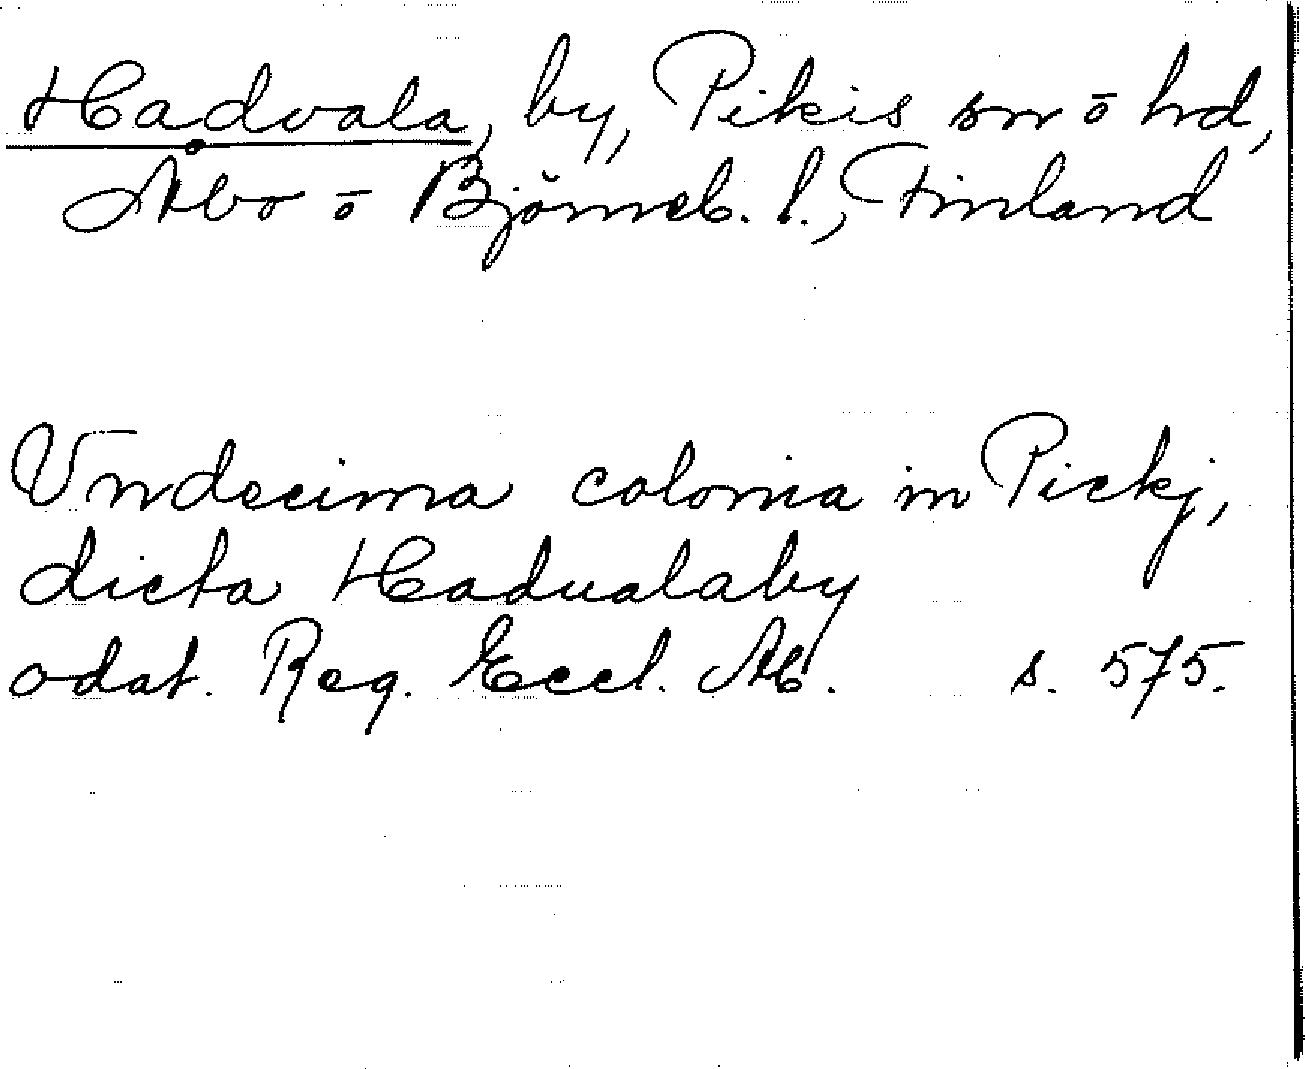 Hadvala, by, Pikis sn ō hd,
Åbo ō Björneb. l., Finland
Vndecima colonia in Pickj,
dicta Hadualaby
odat. Reg. Eccl. Ab. s. 575.